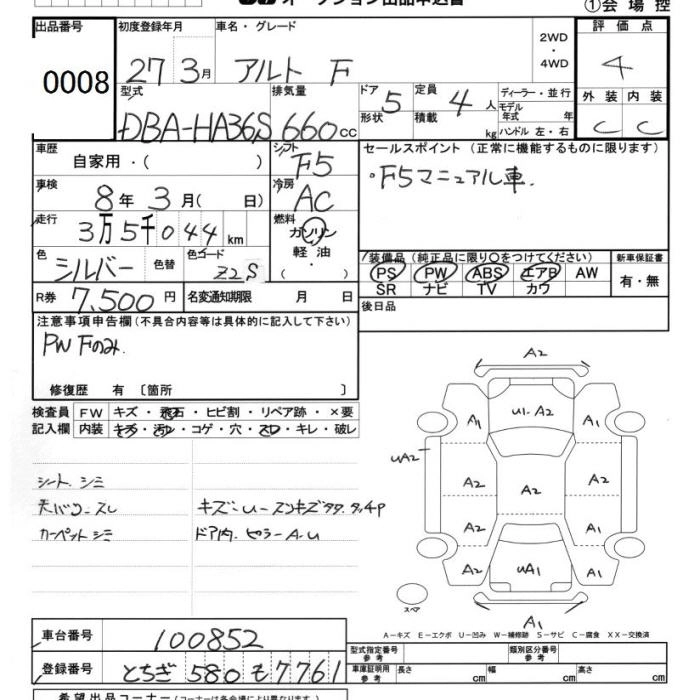 オークション出品申込書 ①会場控
出品番号 初度登録年月 車名・グレード 2WD・4WD 評価点
0008 27 3月 アルト F 4
型式 排気量 ドア 形状 定員 積載 ディーラー・並行 モデル年式 年 ハンドル 左・右 外装 内装
DBA-HA36S 660cc 5 4人 kg C C
車歴 自家用・( ) シフト F5 セールスポイント (正常に機能するものに限ります)
車検 8年3月( 日) 冷房 AC ・F5マニュアル車.
走行 3万5千044km 燃料 ガソリン 軽油 ・( )
色 シルバー 色替 色コード Z2S 装備品 (純正品に限り○をつけてください) 新車保証書
PS PW ABS エアB AW 有・無
SR ナビ TV カワ
R券 7.500円 名変通知期限 月 日 後日品
注意事項申告欄(不具合内容等は具体的に記入して下さい)
PW Fのみ.
修復歴 有 〔箇所 〕
検査員 FW キズ・飛石・ヒビ割・リペア跡・×要
記入欄 内装 キズ・汚レ・コゲ・穴・スレ・キレ・破レ
シート シミ
天バリ-スレ キズ-U-スリキズタタ.タ4P
カーペット シミ ドア内.ピラーA-U
A2
A1 U1.A2 A1
UA2
A2 A2 A2
A2 A1
A2 UA1 A1
スペア
A1
A-キズ E-エクボ U-凹み W-補修跡 S-サビ C-腐食 XX-交換済
車台番号 100852 型式指定番号 参考 類別区分番号 参考
登録番号 とちぎ 580 も 7761 車庫証明用 参考 長さ cm 幅 cm 高さ cm
希望出品コーナー (コーナーは各会場により異なります)